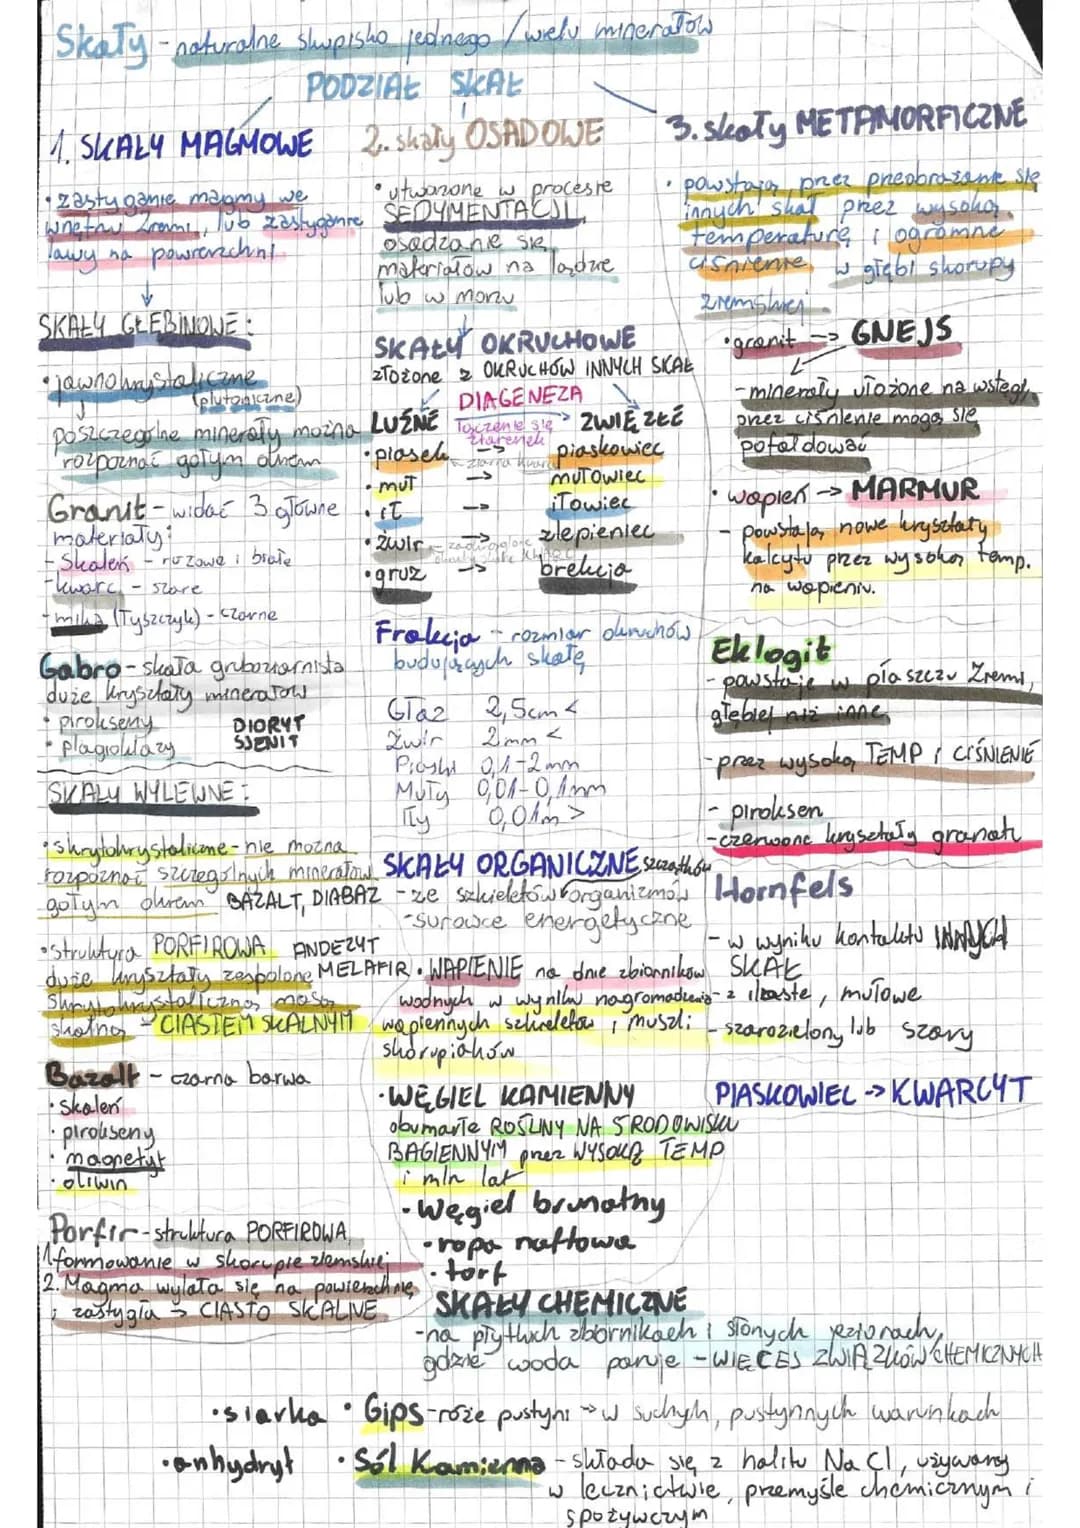 Skały - naturalne skupisko jednego / wielu minerałów
PODZIAŁ SKAŁ
1. SKAŁY MAGMOWE
• zastyganie magmy we
wnętrzu Ziemi, lub zastyganie
lawy na powierzchni
SKAŁY GŁĘBINOWE:
• jawnokrystaliczne
(plutoniczne)
poszczególne minerały można
rozpoznać gołym okiem
Granit - widać 3 główne
materiały:
- Skaleń - różowe i białe
- kwarc - szare
- mika (Łyszczyk) - czarne
Gabro - skała gruboziarnista
duże kryształy minerałów
• pirokseny
• plagioklazy
DIORYT
SJENIT
SKAŁY WYLEWNE:
• skrytokrystaliczne - nie można
rozpoznać szczególnych minerałów
gołym okiem BAZALT, DIABAZ
• struktura PORFIROWA ANDEZYT
duże kryształy zespolone MELAFIR
skrytokrystaliczną masą
skalną - CIASTEM SKALNYM
Bazalt - czarna barwa
• Skaleń
• pirokseny
• magnetyt
• oliwin
Porfir - struktura PORFIROWA
1. formowanie w skorupie ziemskiej
2. Magma wylała się na powierzchnię
i zastygła → CIASTO SKALNE
2. skały OSADOWE
• utworzone w procesie
SEDYMENTACJI
osadzanie się
materiałów na lądzie
lub w morzu
SKAŁY OKRUCHOWE
złożone z OKRUCHÓW INNYCH SKAŁ
DIAGENEZA
LUŹNE łączenie się ziarenek → ZWIĘZŁE
• piasek - ziarna kwarcu → piaskowiec
• muł → mułowiec
• ił → iłowiec
• żwir → zlepieniec
• gruz → brekcja
Frakcja - rozmiar okruchów
budujących skałę
Głaz 2,5cm <
Żwir 2mm <
Piaski 0,1-2mm
Muły 0,01-0,1mm
Iły 0,01m >
SKAŁY ORGANICZNE szczątków
- ze szkieletów organizmów
- surowce energetyczne
• WAPIENIE na dnie zbiorników
wodnych w wyniku nagromadzenia
wapiennych szkieletów i muszli
skorupiaków
• WĘGIEL KAMIENNY
obumarłe ROŚLINY NA ŚRODOWISKU
BAGIENNYM przez WYSOKĄ TEMP
i mln lat
• węgiel brunatny
• ropa naftowa
• torf
SKAŁY CHEMICZNE
- na płytkich zbiornikach i słonych jeziorach,
gdzie woda paruje - WIĘCEJ ZWIĄZKÓW CHEMICZNYCH
• siarka • Gips - róże pustyni → w suchych, pustynnych warunkach
• anhydryt • Sól Kamienna - składa się z halitu NaCl, używany
w lecznictwie, przemyśle chemicznym i
spożywczym
3. skały METAMORFICZNE
• powstają przez przeobrażanie się
innych skał przez wysoką
temperaturę i ogromne
ciśnienie w głębi skorupy
ziemskiej
• granit → GNEJS
- minerały ułożone na wstęgi,
przez ciśnienie mogą się
pofałdować
• wapień → MARMUR
- powstają nowe kryształy
kalcytu przez wysoką temp.
na wapieniu.
Eklogit
- powstaje w płaszczu Ziemi,
głębiej niż inne
- przez wysoką TEMP i CIŚNIENIE
- piroksen
- czerwone kryształy granatu
Hornfels
- w wyniku kontaktu INNYCH
SKAŁ
- z ilaste, mułowe
- szarozielony lub szary
PIASKOWIEC → KWARCYT